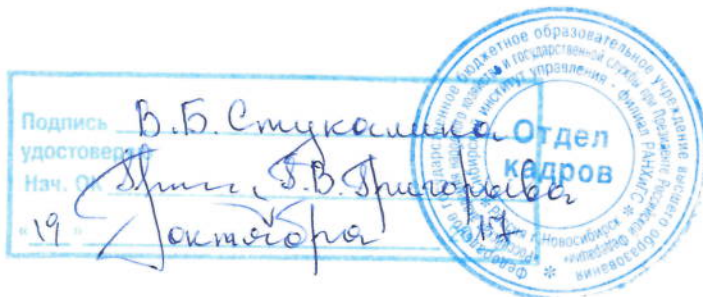 Подпись В.Б. Стукалина
удостоверяю
Нач. ОК Григ, Т.В. Григорьева
"19" октября 17
Отдел
кадров
Федеральное государственное бюджетное образовательное учреждение высшего образования
хозяйства и государственной службы при Президенте Российской Федерации»
институт управления - филиал РАНХиГС
Россия г. Новосибирск